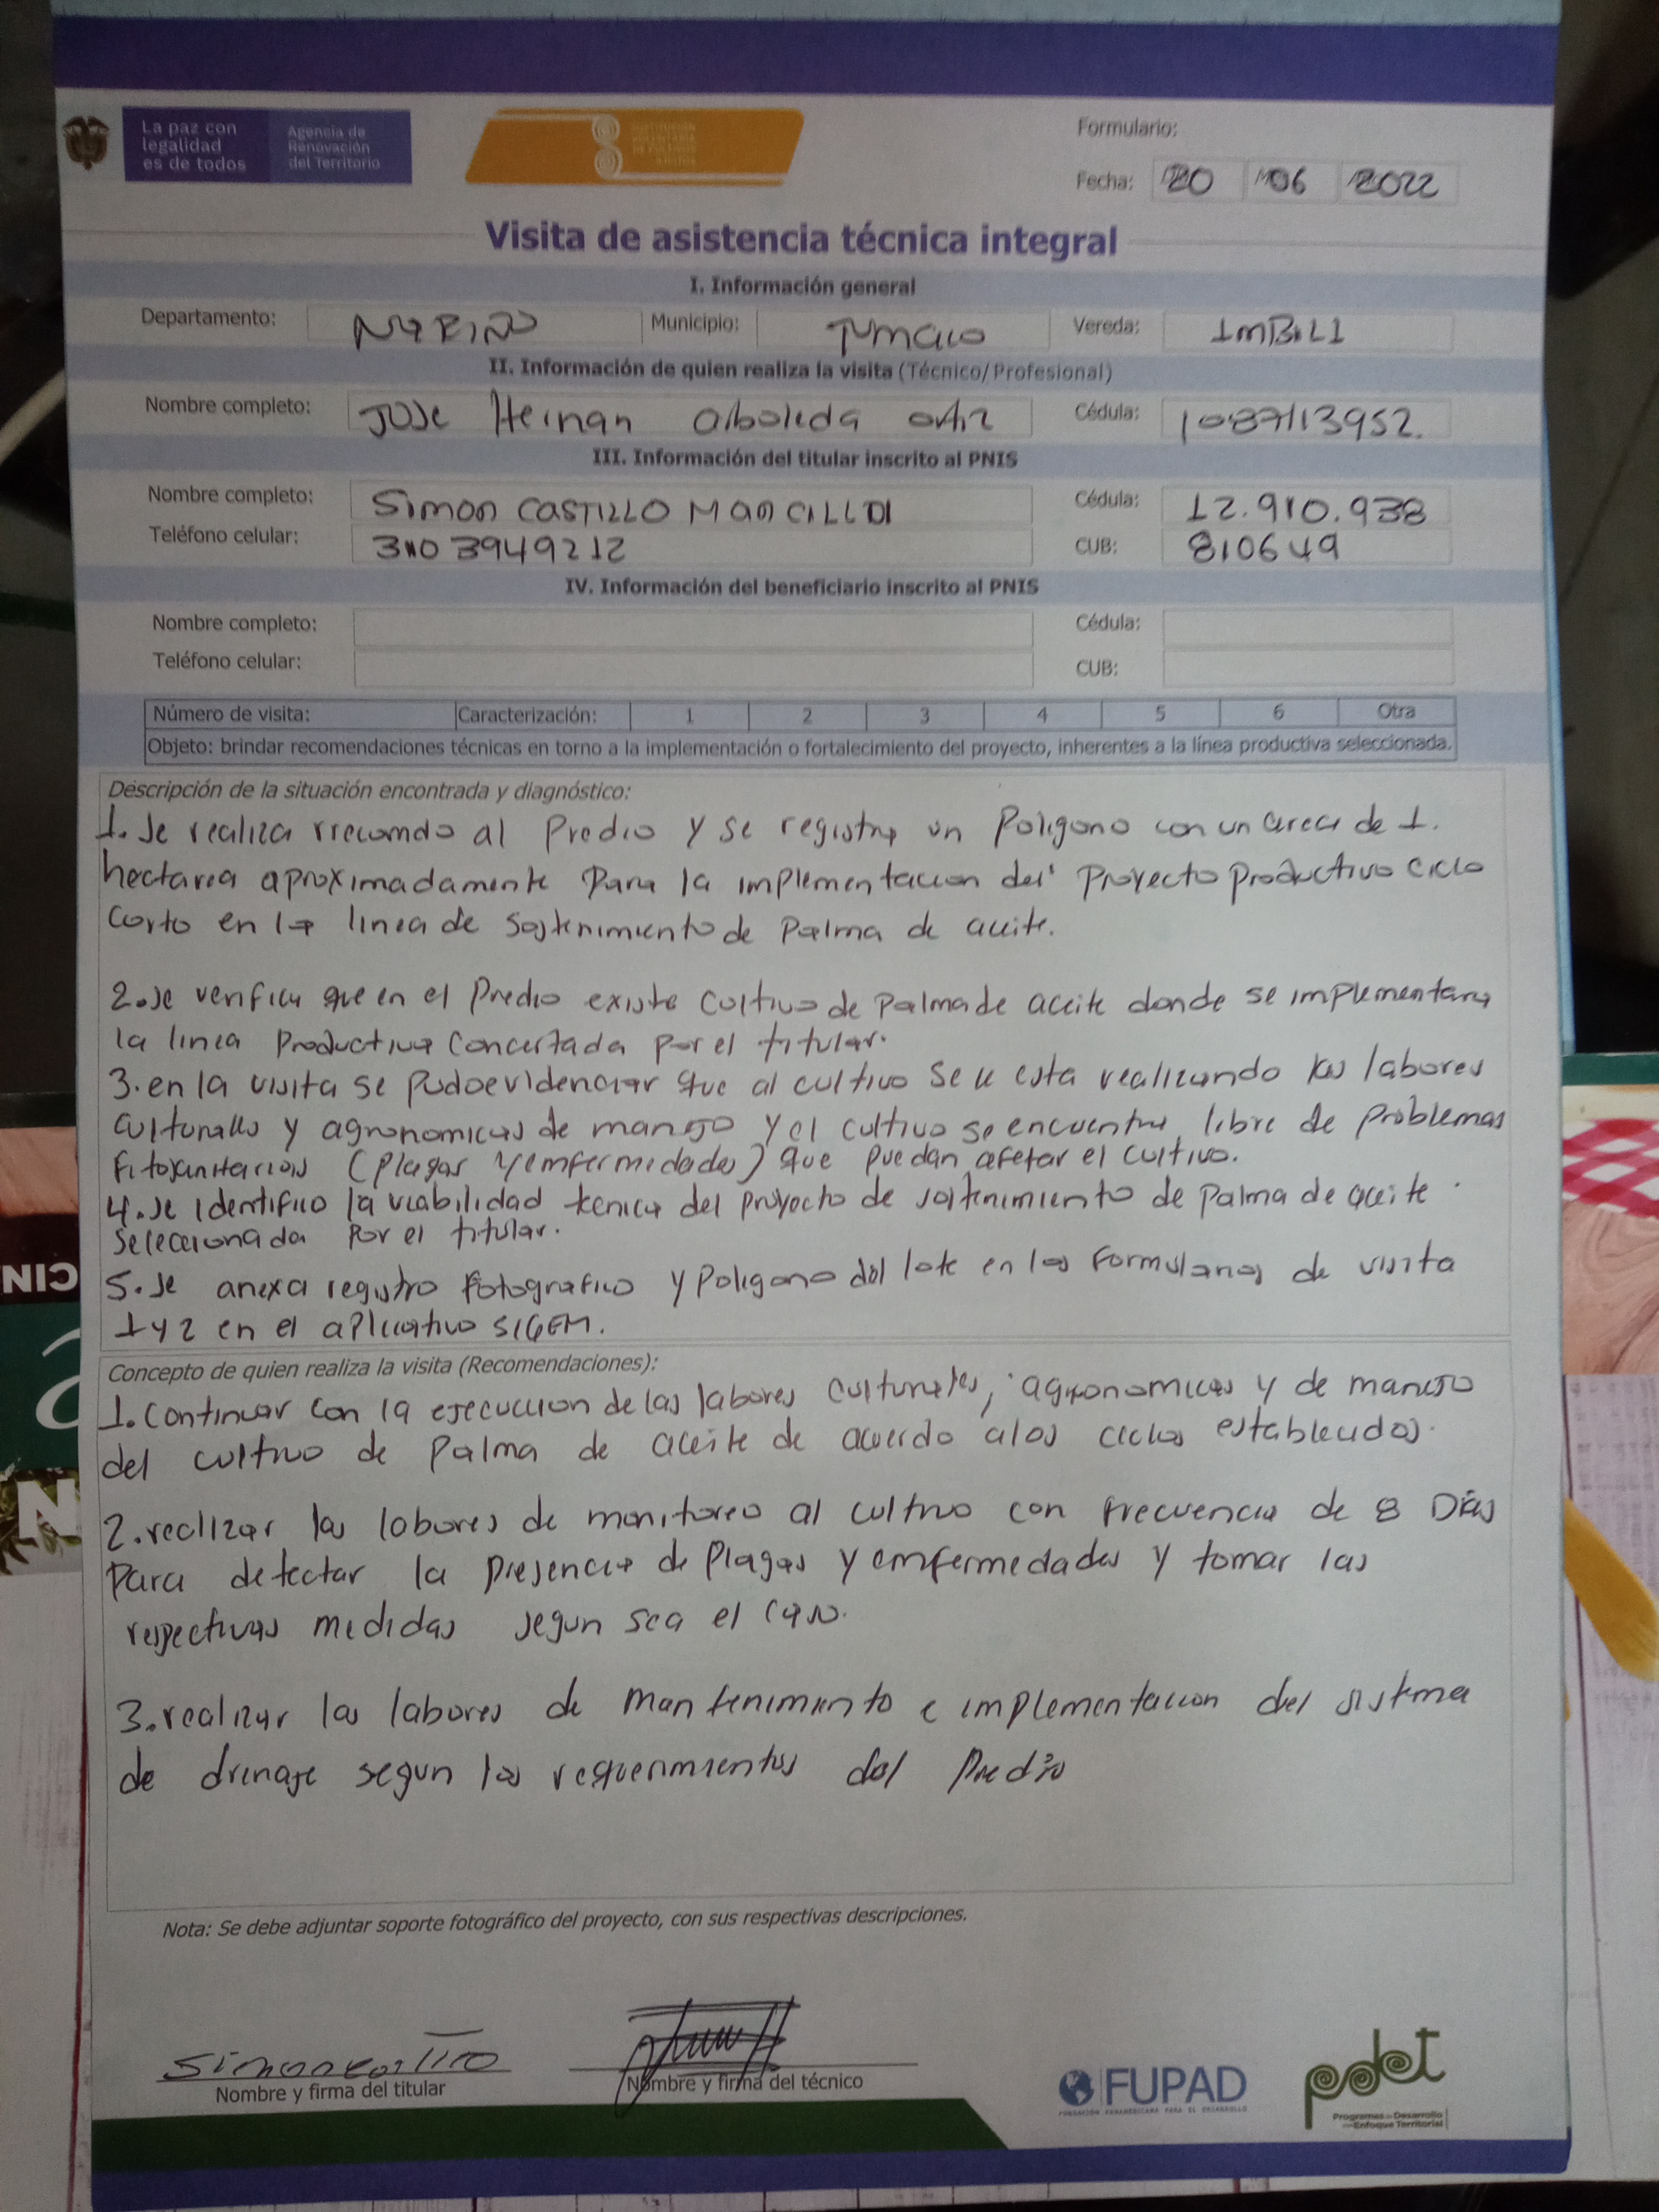 La paz con
legalidad
es de todos
Agencia de
Renovación
del Territorio
Formulario:
Fecha: 20 06 2022
Visita de asistencia técnica integral
I. Información general
Departamento: NARIÑO Municipio: Tumaco Vereda: IMBILI
II. Información de quien realiza la visita (Técnico/Profesional)
Nombre completo: JOSE Hernan arboleda ortiz Cédula: 1087113952.
III. Información del titular inscrito al PNIS
Nombre completo: Simon CASTILLO Cédula: 12.910.938
Teléfono celular: 3103949212 CUB: 810649
IV. Información del beneficiario inscrito al PNIS
Nombre completo: Cédula:
Teléfono celular: CUB:
Número de visita: Caracterización: 1 2 3 4 5 6 Otra
Objeto: brindar recomendaciones técnicas en torno a la implementación o fortalecimiento del proyecto, inherentes a la línea productiva seleccionada.
Descripción de la situación encontrada y diagnóstico:
1. Se realiza al Predio y se registra un Poligono con un area de 1.
hectarea aproximadamente Para la implementacion del Proyecto Productivo Ciclo
Corto en la linea de Sostenimiento de Palma de aceite.
2. Se verifica que en el Predio existe Cultivo de Palma de aceite donde se implementara
la linea Productiva Concertada por el titular.
3. en la visita se pudo evidenciar que al cultivo se le esta realizando las labores
culturales y agronomicas de manejo y el cultivo se encuentra libre de problemas
fitosanitarios (plagas y emfermedades) que puedan afetar el cultivo.
4. Se identifico la viabilidad tecnica del proyecto de sostenimiento de palma de aceite.
Seleccionada Por el titular.
5. Se anexa registro fotografico y poligono del lote en los formularios de visita
1 y 2 en el aplicativo SIGEM.
Concepto de quien realiza la visita (Recomendaciones):
1. Continuar con la ejecucion de las labores culturales, agronomicas y de manejo
del cultivo de Palma de aceite de acuerdo a los ciclos establecidos.
2. realizar las labores de monitoreo al cultivo con frecuencia de 8 Dias
Para detectar la presencia de Plagas y emfermedades y tomar las
respectivas medidas segun sea el caso.
3. realizar las labores de mantenimiento e implementacion del sistema
de drenaje segun los requerimientos del Predio
Nota: Se debe adjuntar soporte fotográfico del proyecto, con sus respectivas descripciones.
Nombre y firma del titular
Nombre y firma del técnico
FUPAD
FUNDACIÓN PANAMERICANA PARA EL DESARROLLO
pdet
Programas de Desarrollo
con Enfoque Territorial